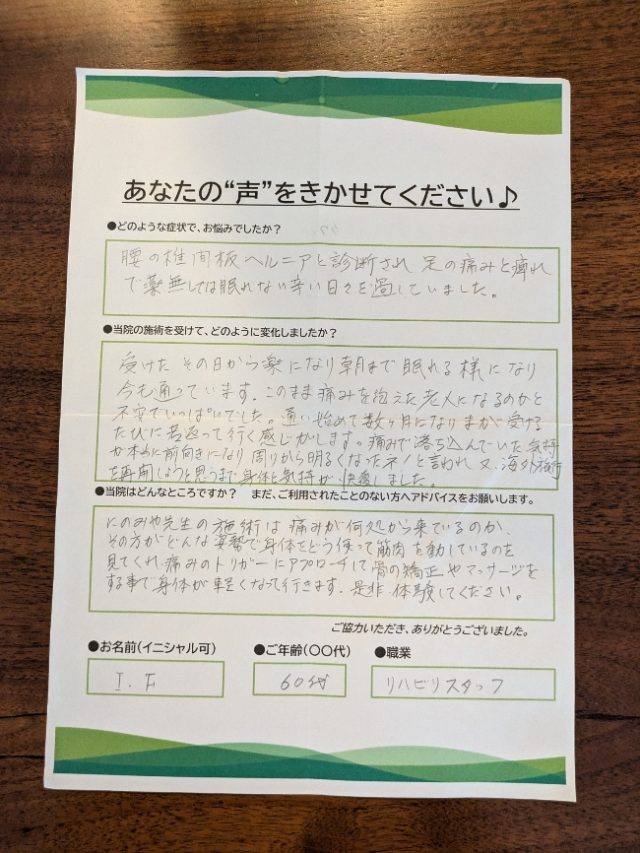 あなたの“声”をきかせてください♪
●どのような症状で、お悩みでしたか？
腰の椎間板ヘルニアと診断され 足の痛みと痺れ
で薬無しでは眠れない辛い日々を過していました。
●当院の施術を受けて、どのように変化しましたか？
受けた その日から楽になり朝まで眠れる様になり
今も通っています。このまま痛みを抱えた老人になるのかと
不安でいっぱいでした。通い始めて数ヶ月になりますが受ける
たびに若返って行く感じがします。痛みで落ち込んでいた気持
が本当に前向きになり周りから明るくなったネ！と言われ 又、海外旅行
を再開しようと思うまで身体と気持が快復しました。
●当院はどんなところですか？ まだ、ご利用されたことのない方へアドバイスをお願いします。
にのみや先生の施術は痛みが何処から来ているのか、
その方がどんな姿勢で身体をどう使って筋肉を動しているのを
見てくれ、痛みのトリガーにアプローチして骨の矯正やマッサージを
する事で身体が軽くなって行きます。是非体験してください。
ご協力いただき、ありがとうございました。
●お名前（イニシャル可） ●ご年齢（〇〇代） ●職業
I.F 60代 リハビリスタッフ